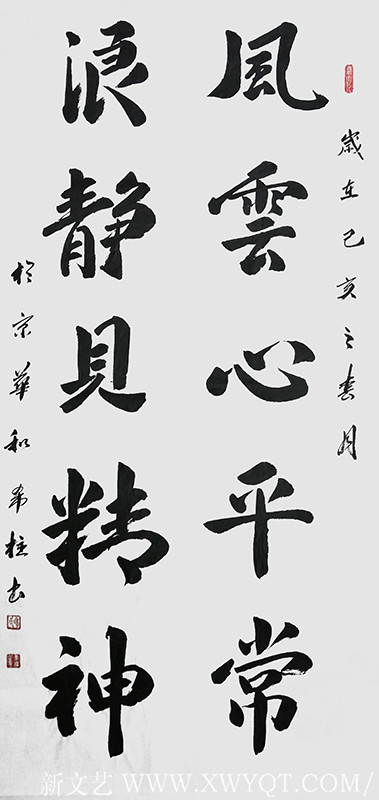 歲在己亥之春月
風雲心平常
浪靜見精神
於京華和希柱書
新文艺 WWW.XWYQT.COM/